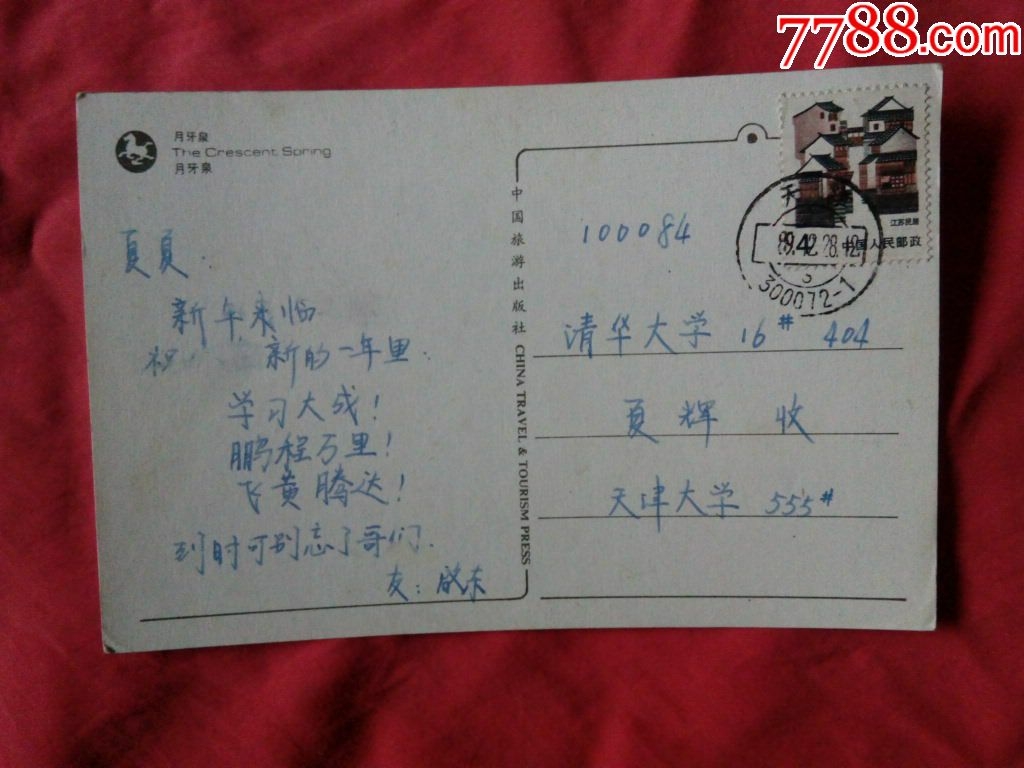 7788.com
月牙泉
The Crescent Spring
月牙泉
夏夏.
新年来临
祝 新的一年里.
学习大成!
鹏程万里!
飞黄腾达!
到时可别忘了哥们.
友:
中国旅游出版社 CHINA TRAVEL & TOURISM PRESS
江苏民居
中国人民邮政
天
12.28.12
300072-1
100084
清华大学 16# 404
夏辉 收
天津大学 555#